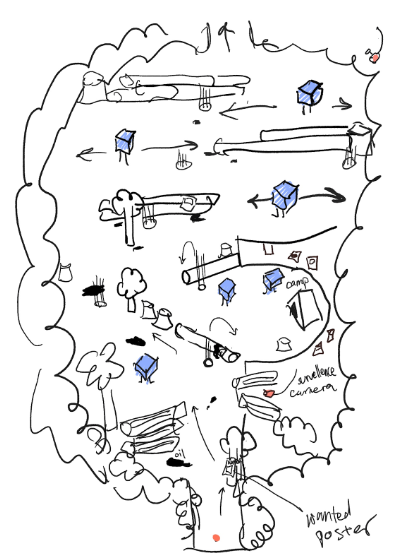 camp
survellence
camera
oil
wanted
poster